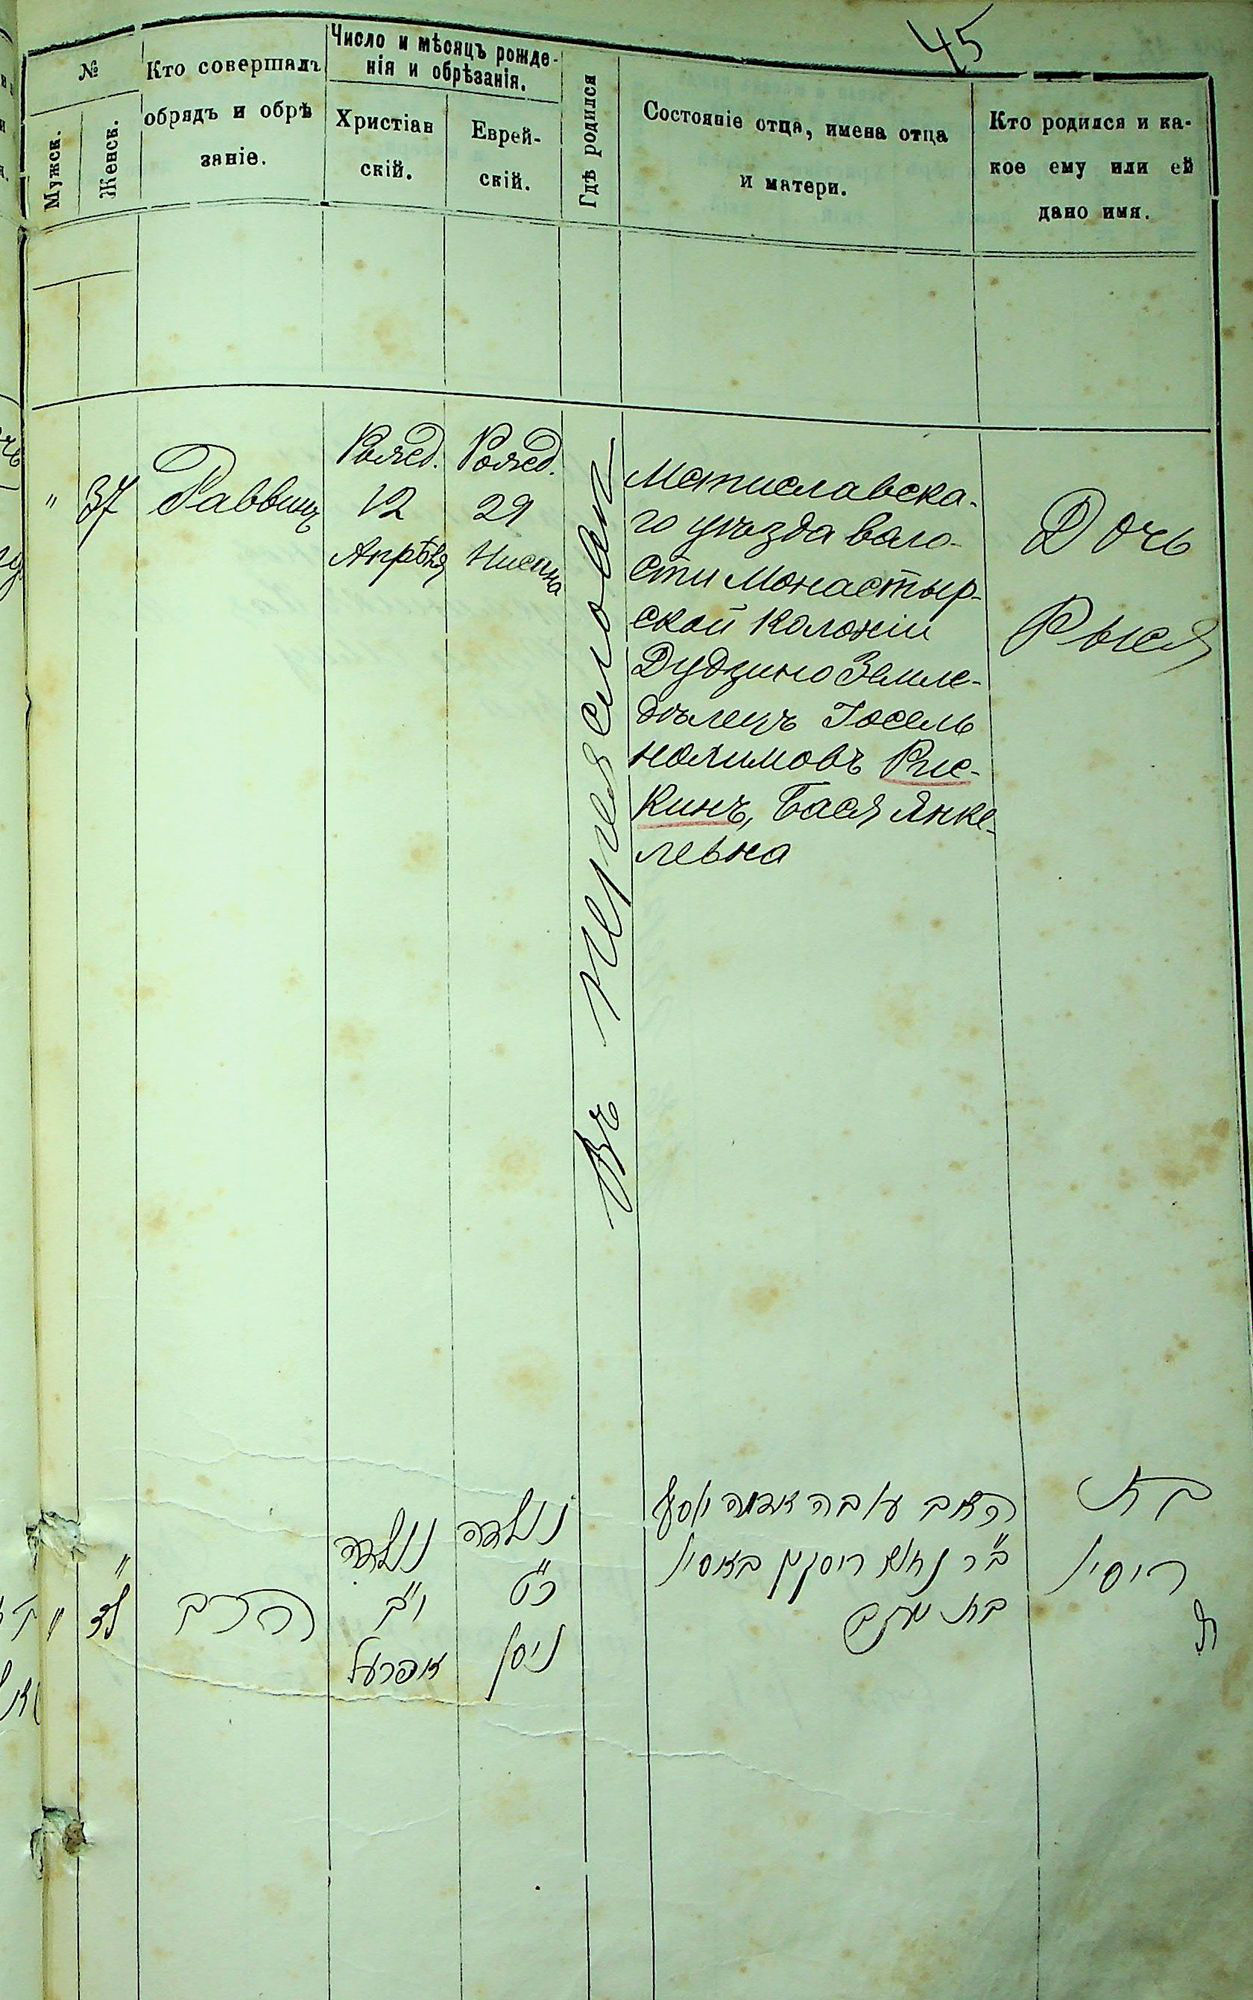 45
№
Мужск.
Женск.
Кто совершалъ
обрядъ и обрѣ
заніе.
Число и мѣсяцъ рожде-
нія и обрѣзанія.
Христіан
скій.
Еврей-
скій.
Гдѣ родился
Состояніе отца, имена отца
и матери.
Кто родился и ка-
кое ему или ей
дано имя.
"
37
Раввинъ
Рожд.
12
Апрѣля
Рожд.
29
Нисана
Въ
Мстиславска-
го уѣзда воло-
сти Монастыр-
ской колоніи
Дудзино Земле-
дѣлецъ Іосель
Нохимовъ Рис-
кинъ, Бася Янке-
левна
Дочь
Рыся
"
לז
הרב
נולדה
י"ב
אפרעל
נולדה
כ"ט
ניסן
האב עובד אדמה יוסף
ב"ר נחום ריסקין באסיא
בת יעקב
בת
ריסיא